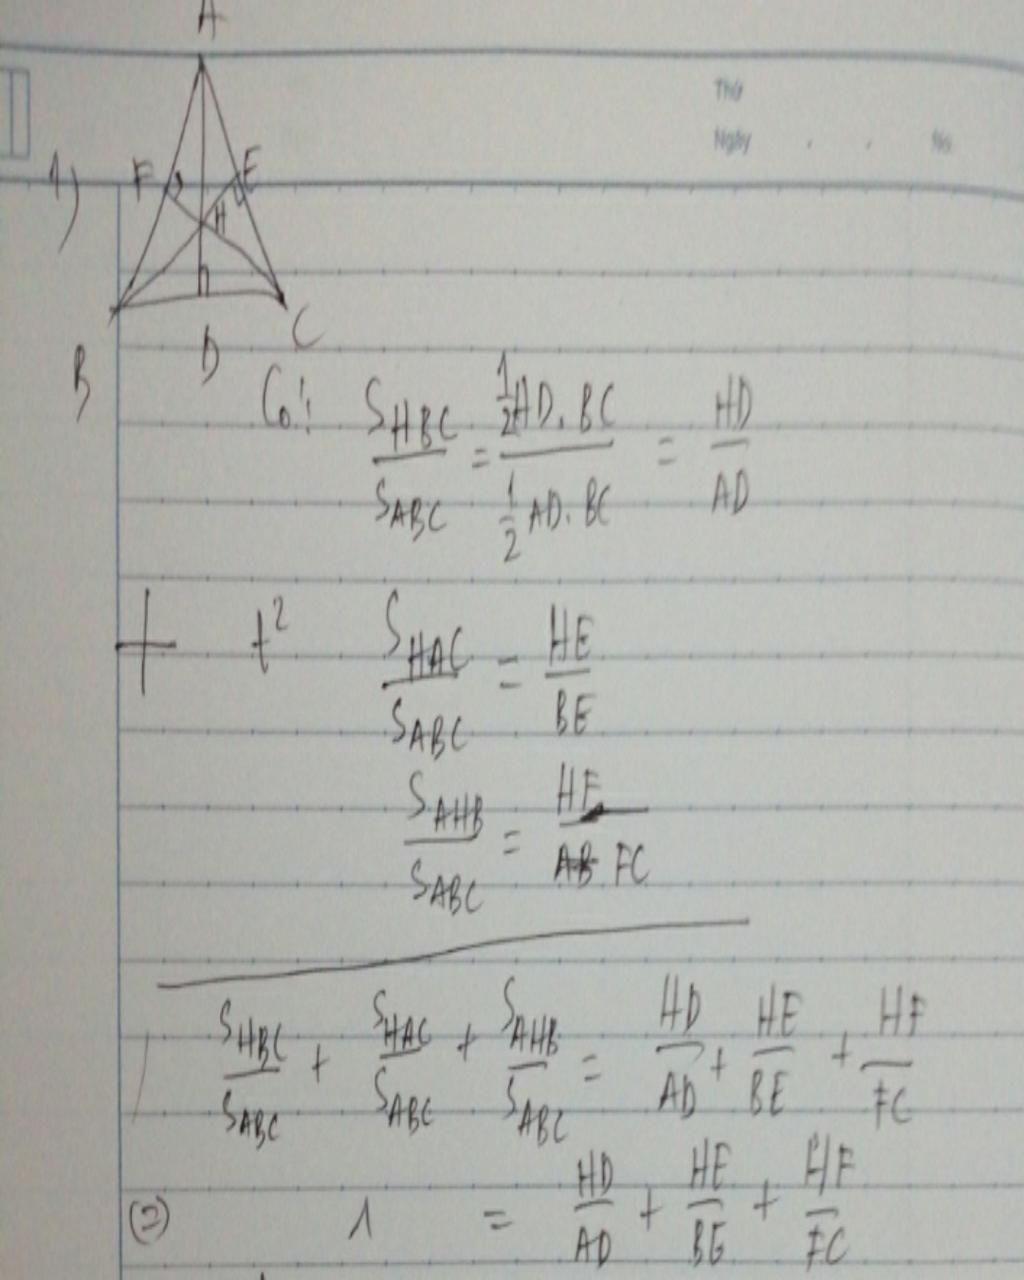 A
Thứ
Ngày . . No
1) F E
H
B D C
Có: S_HBC / S_ABC = (1/2 HD. BC) / (1/2 AD. BC) = HD / AD
+ t² S_HAC / S_ABC = HE / BE
S_AHB / S_ABC = HF / FC
S_HBC / S_ABC + S_HAC / S_ABC + S_AHB / S_ABC = HD / AD + HE / BE + HF / FC
(=) 1 = HD / AD + HE / BE + HF / FC